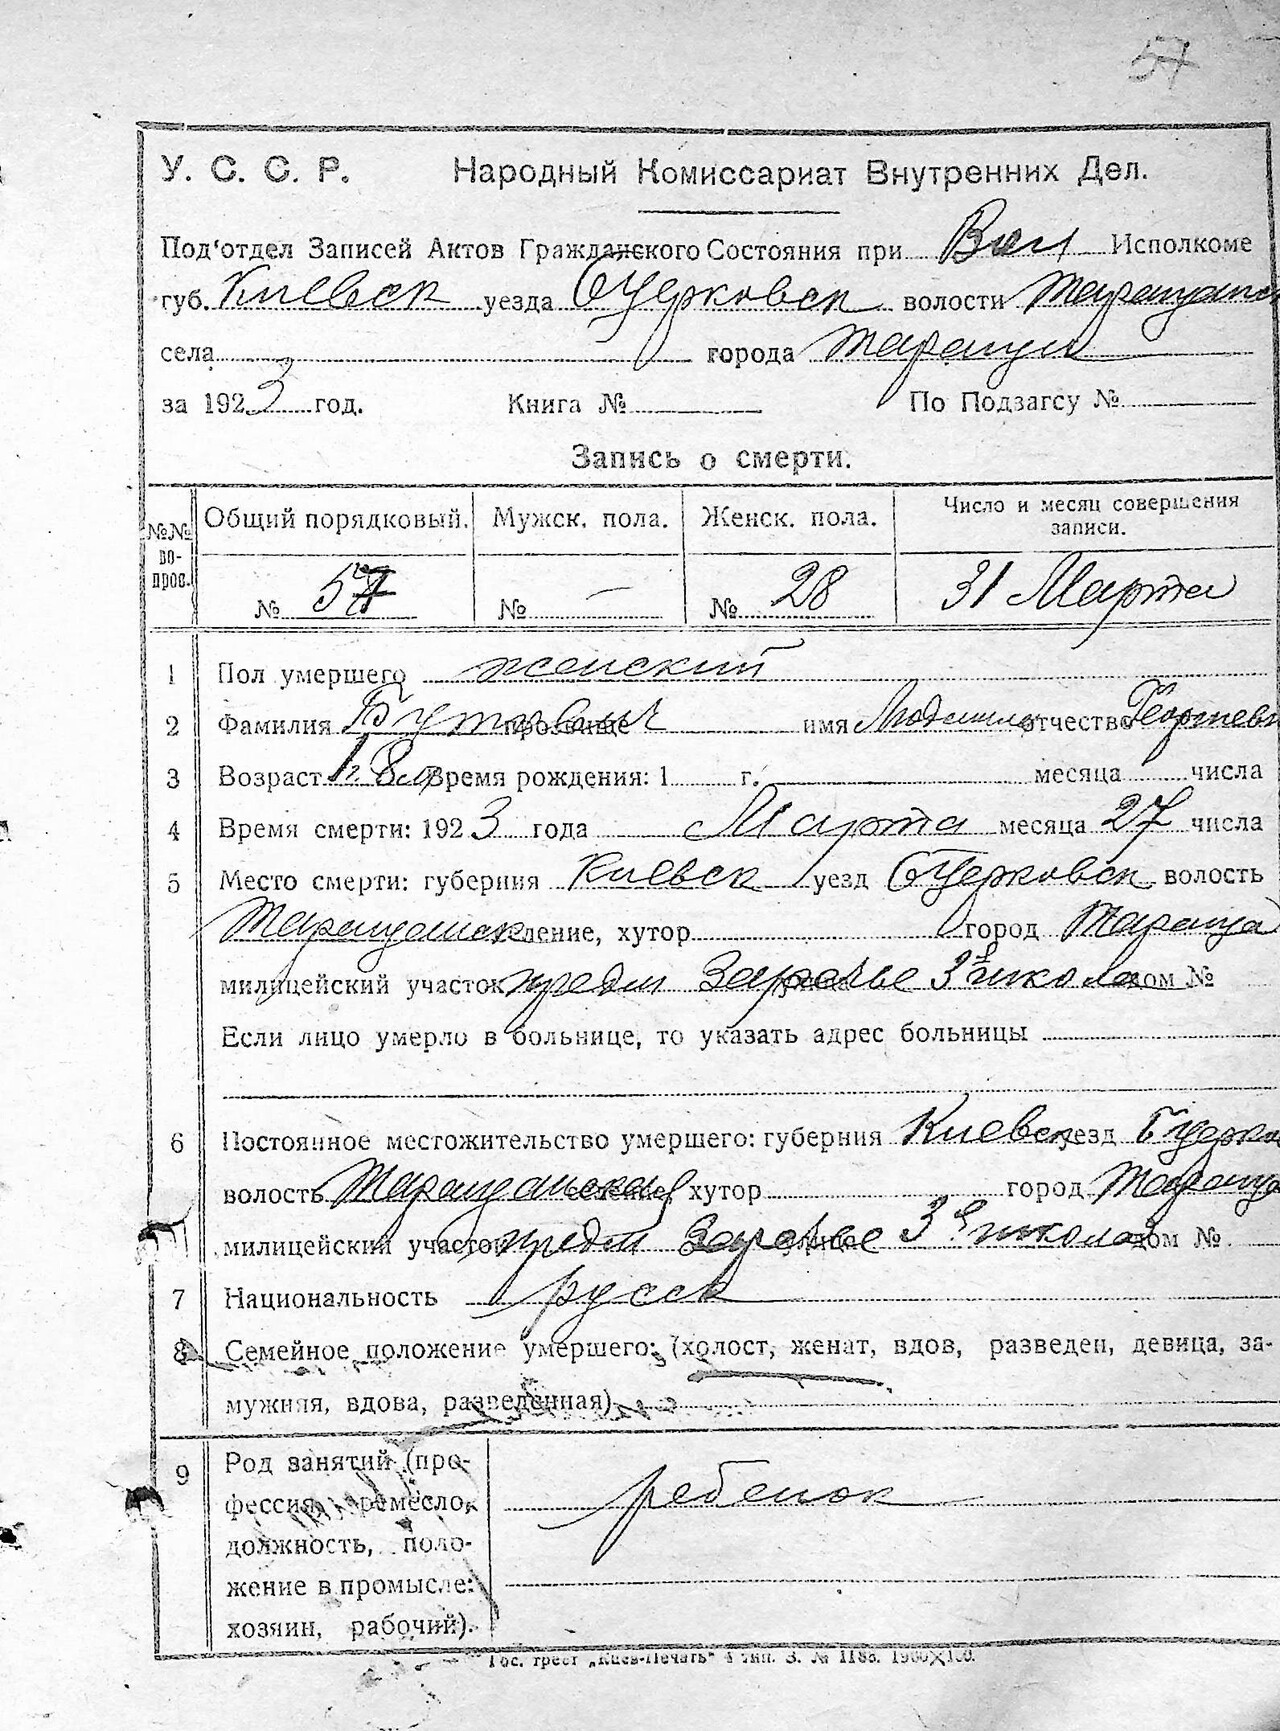 57
У. С. С. Р. Народный Комиссариат Внутренних Дел.
Под'отдел Записей Актов Гражданского Состояния при Вол Исполкоме
губ. Киевск уезда БЦерковск волости Таращанск
села города Таращи
за 1923 год. Книга № По Подзагсу №
Запись о смерти.
№№ вопрос. Общий порядковый. Мужск. пола. Женск. пола. Число и месяц совершения записи.
№ 57 № — № 28 31 Марта
1 Пол умершего женский
2 Фамилия Бутович прозвище имя Людмила отчество Георгиевн
3 Возраст Время рождения: 1 г. месяца числа
4 Время смерти: 1923 года Марта месяца 27 числа
5 Место смерти: губерния Киевск уезд БЦерковск волость
Таращанск селение, хутор город Тараща
милицейский участок предм Заречье 3я школа дом №
Если лицо умерло в больнице, то указать адрес больницы
6 Постоянное местожительство умершего: губерния Киевск уезд БЦерко
волость Таращанская селение, хутор город Тараща
милицейский участок предм Заречье улица 3я школа дом №
7 Национальность русск
8 Семейное положение умершего: (холост, женат, вдов, разведен, девица, за-
мужняя, вдова, разведенная)
9 Род занятий (про-
фессия, ремесло, ребенок
должность, поло-
жение в промысле:
хозяин, рабочий).
Гос. трест „Киев-Печать" 4 тип. З. № 1188.